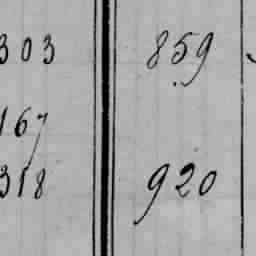 303 859
167
318 920